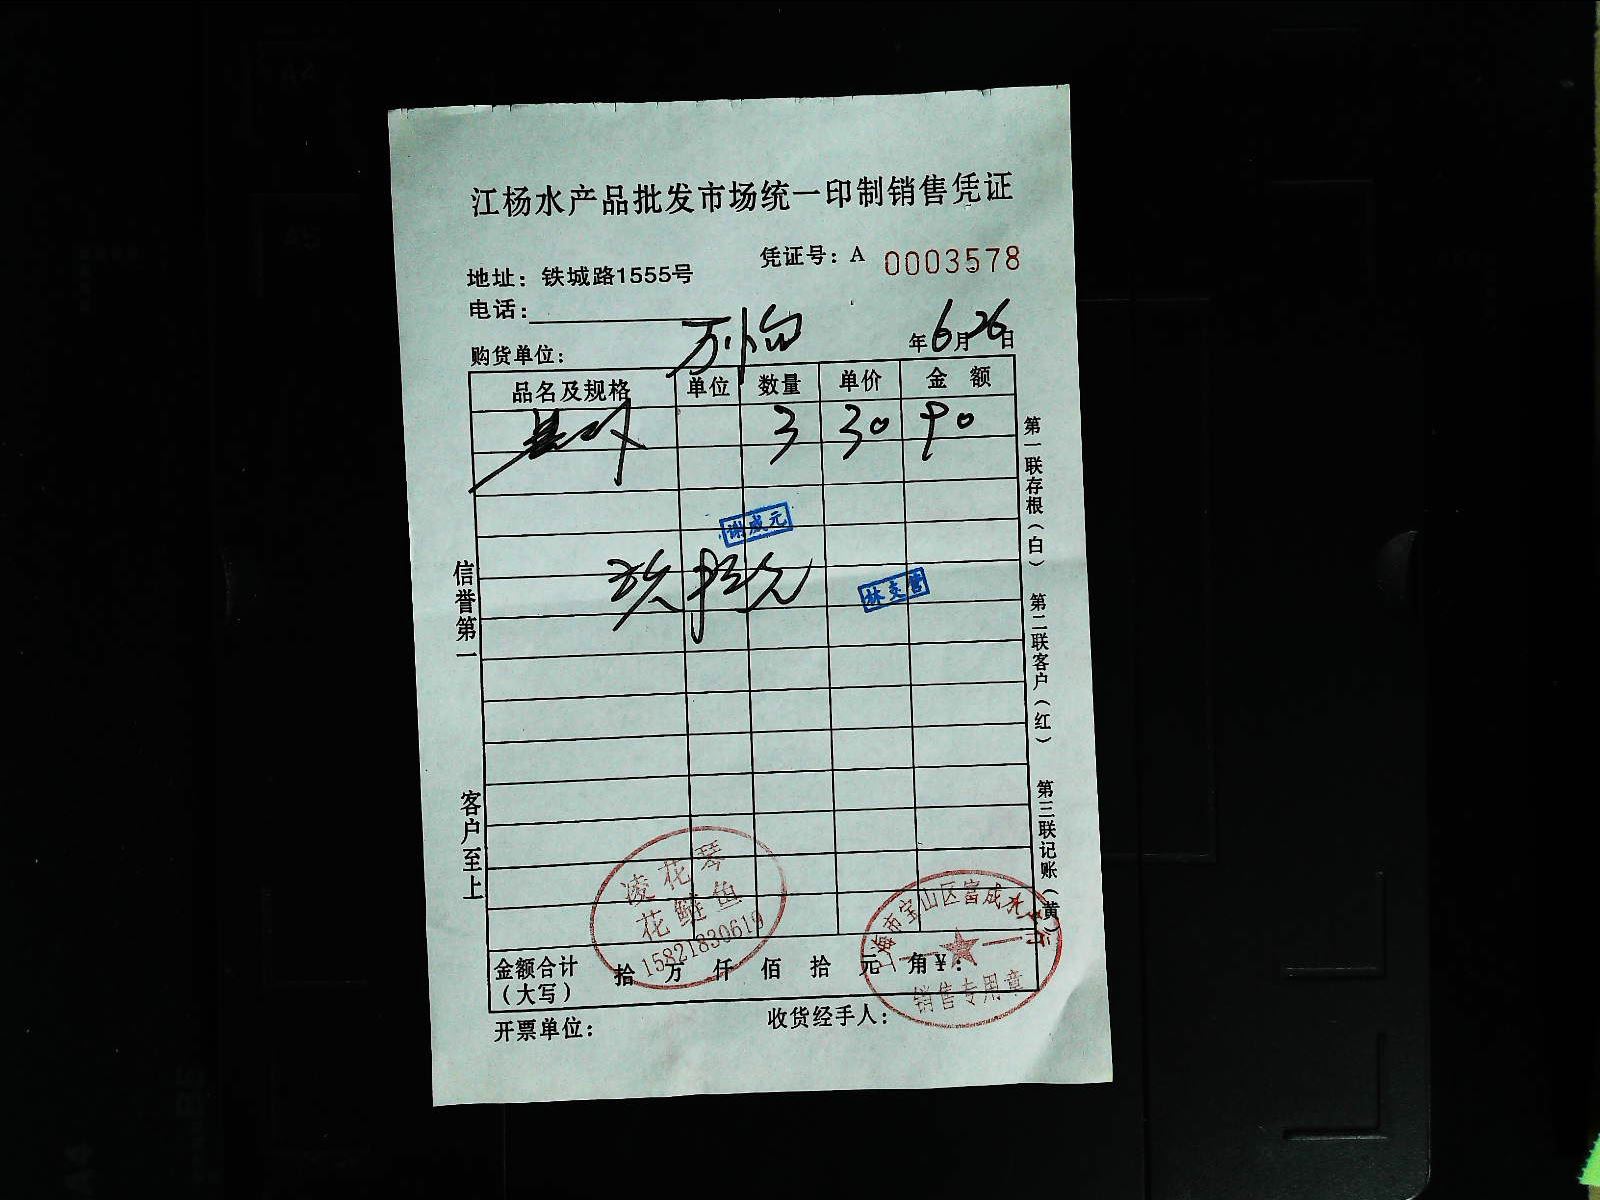 江杨水产品批发市场统一印制销售凭证
凭证号：A 0003578
地址：铁城路1555号
电话：
购货单位：
年6月26日
品名及规格 单位 数量 单价 金额
3 30 90
谢成元
玖拾元
林支雷
信誉第一
客户至上
第一联存根（白）
第二联客户（红）
第三联记账（黄）
凌花琴
花鲢鱼
15821830619
上海市宝山区富成水
销售专用章
金额合计（大写） 拾 万 仟 佰 拾 元 角¥：
开票单位：
收货经手人：